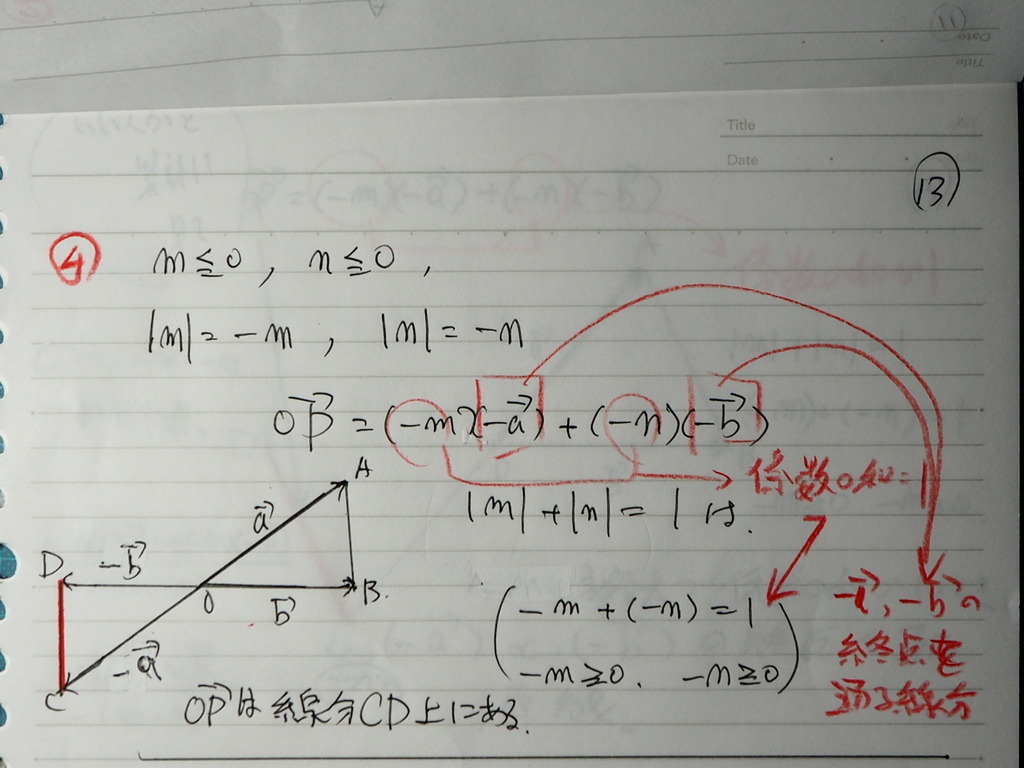 11
Date
Title
Title
Date
⑬
④ m≦0, n≦0,
|m|=-m, |n|=-n
OP→=(-m)(-a→)+(-n)(-b→)
係数の和=1
|m|+|n|=1は.
(-m+(-n)=1
-m≧0. -n≧0)
-a→, -b→の
終点を
通る線分
A
a→
D -b→
O b→ B.
-a→
C
OP→は線分CD上にある.